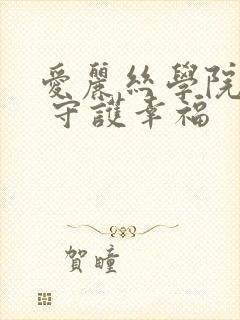 愛麗絲學院
守護幸福
賀瞳